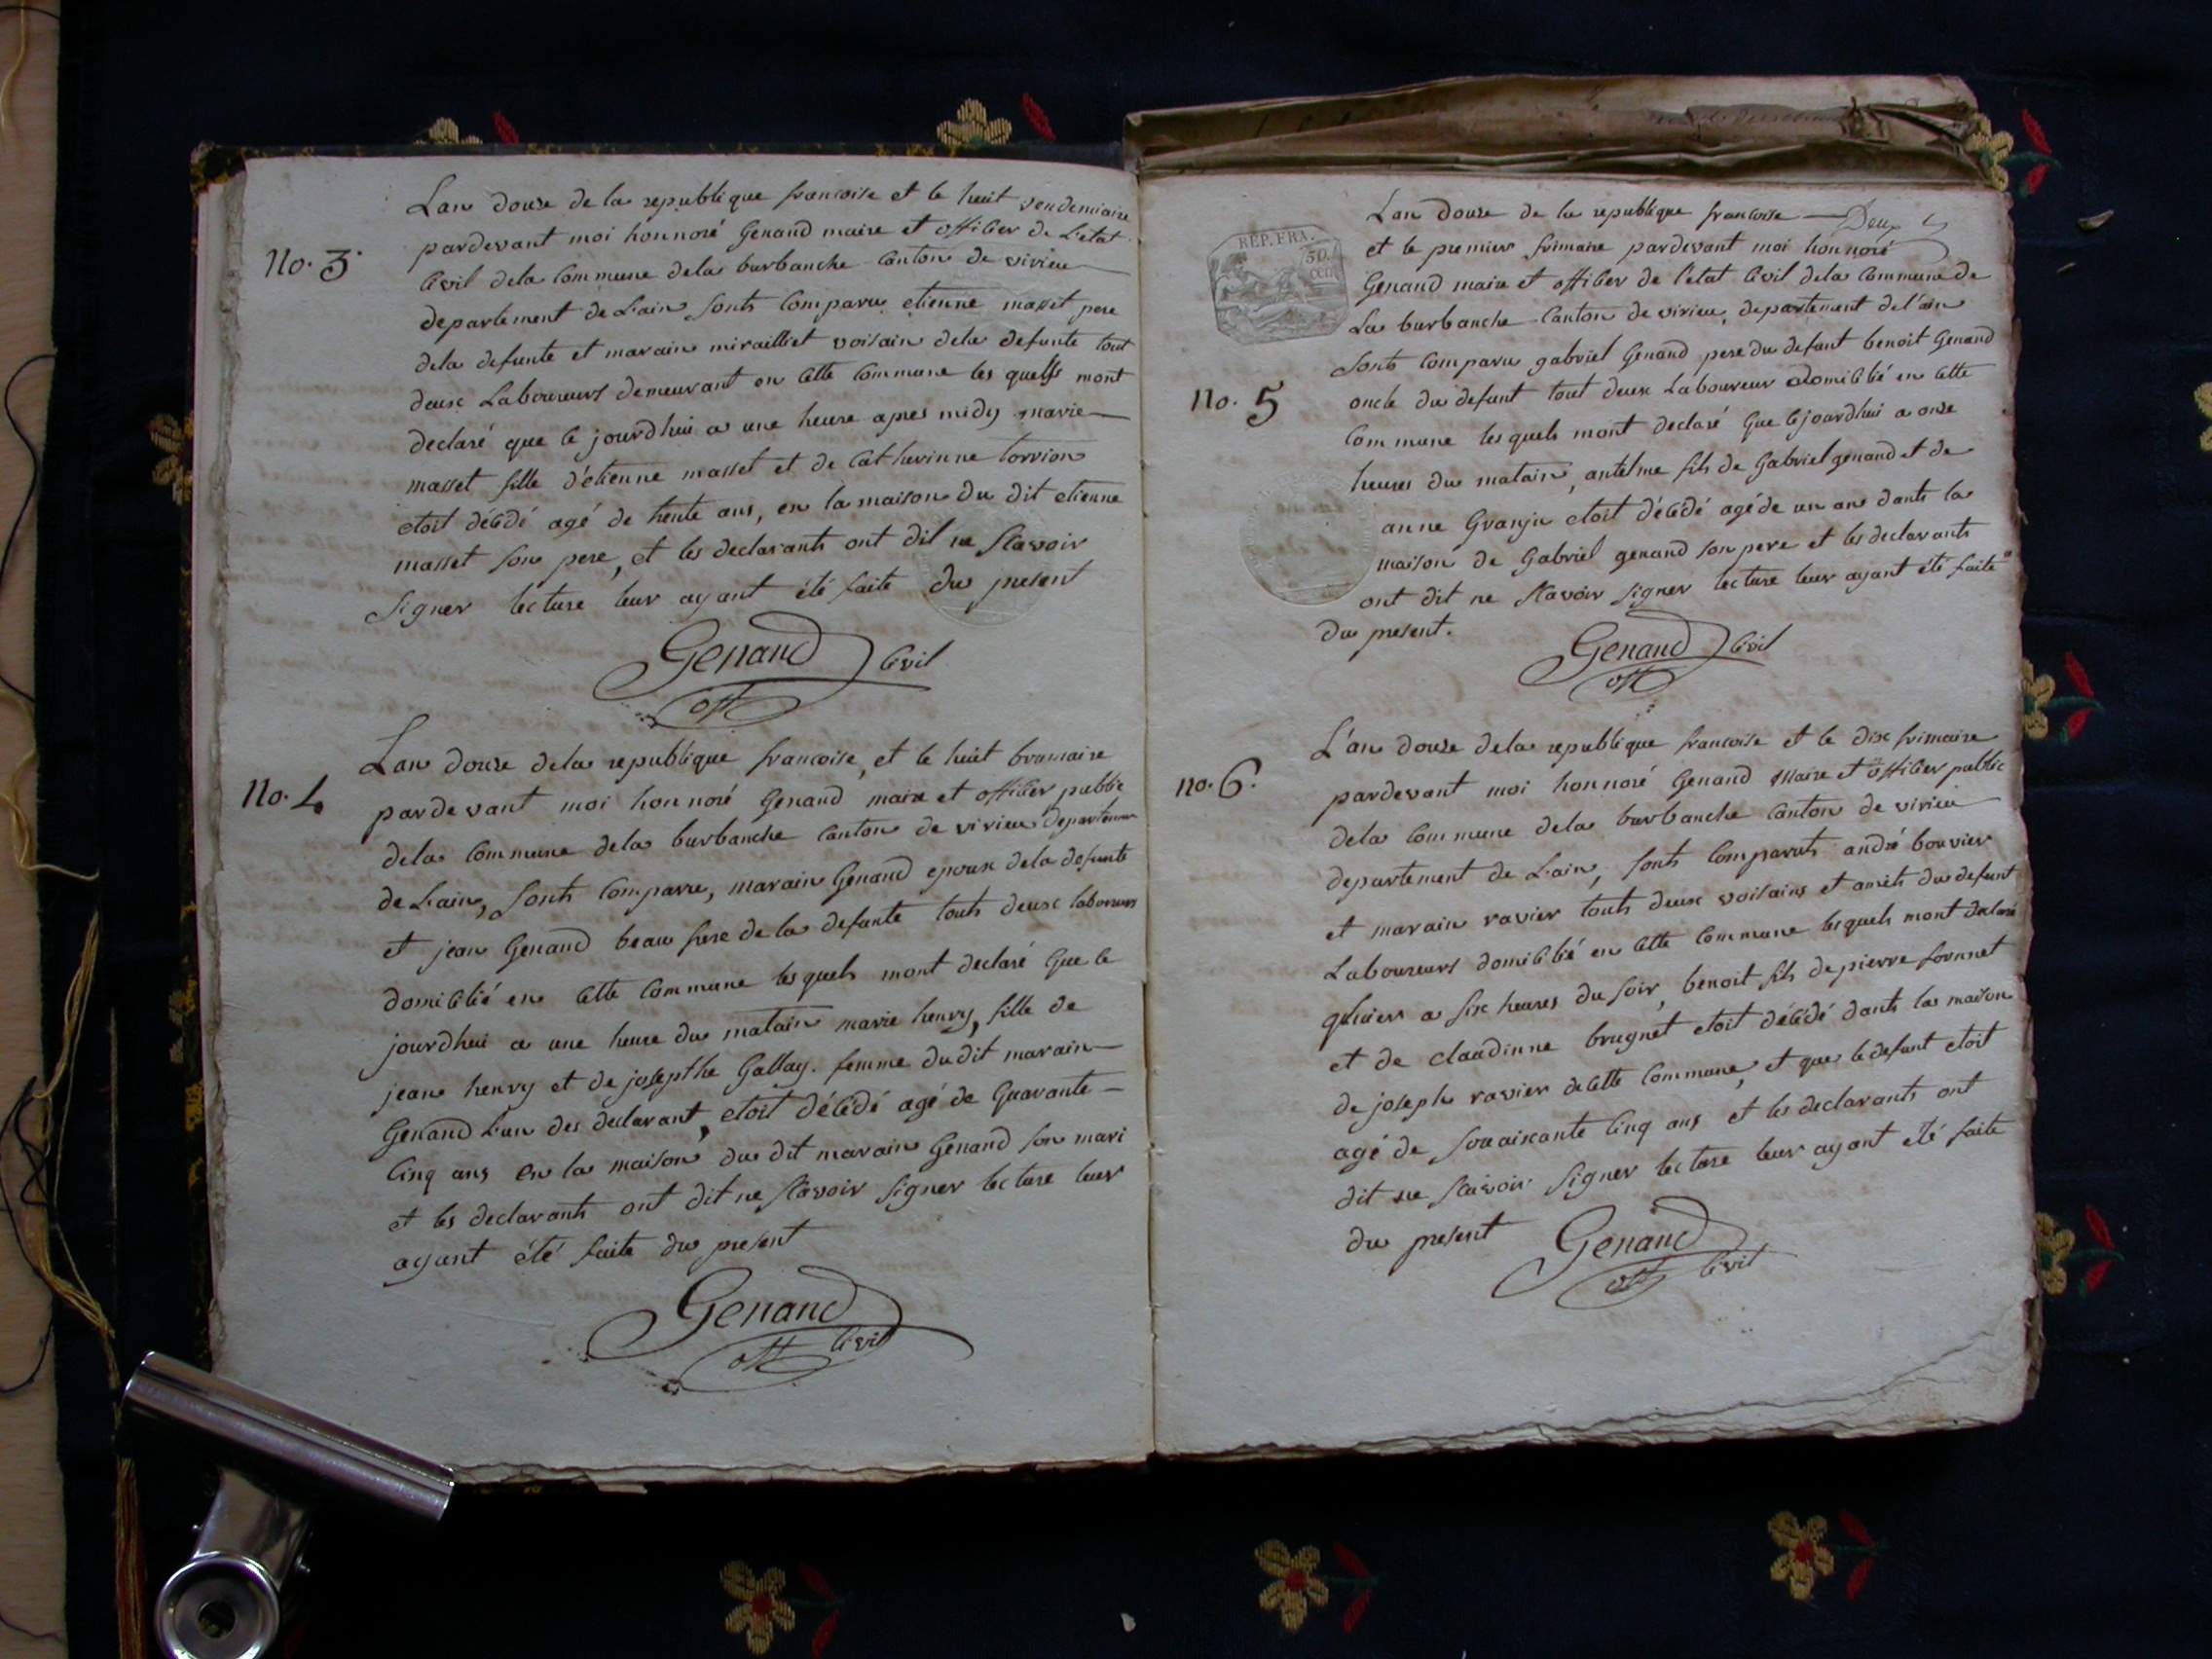 Lan douze de la republique francoise et le huit vendemiaire
No. 3. pardevant moi honnoré Genand maire et officier de L'etat
Civil dela Commune dela burbanche Canton de virieu
departement de L'ain sonts Comparu etienne masset pere
dela defunte et marain mirailliet voisain dela defunte tout
deux Laboureurs demeurant en Cette Commune les quells mont
declaré que Ce jourdhui a une heure apres midy marie
masset fille d'étienne masset et de Catherinne torvion
etoit décédé agé de trente ans, en la maison du dit etienne
masset son pere, et les declarants ont dit ne scavoir
signer lecture leur ayant été faite du present
Genand Civil
off
Lan douze dela republique francoise, et le huit brumaire
No. 4 pardevant moi honnoré Genand maire et officier public
dela Commune dela burbanche Canton de virieu departement
de L'ain, sonts Comparu, marain Genand epoux dela defunte
et jean Genand beau frere de la defunte touts deux laboureurs
domicilié en Cette Commune lesquels mont declaré que Ce
jourdhui a une heure du matain marie henry, fille de
jean henry et de josepthe Gallay. femme dudit marain
Genand L'un des declarant, etoit décédé agé de quarante
Cinq ans en la maison du dit marain Genand son mari
et les declarants ont dit ne scavoir signer lecture leur
ayant été faite du present
Genand
off Civil
REP. FRA.
50
Lan douze de la republique francoise Deux
et le premier frimaire pardevant moi honnoré
Genand maire et officier de l'etat Civil dela Commune de
La burbanche Canton de virieu, departement de l'ain
sonts Comparu gabriel Genand pere du defunt benoit Genand
No. 5 oncle du defunt tout deux Laboureur domicilié en Cette
Commune lesquels mont declaré que Cejourdhui a onze
heures du matain, antelme fils de Gabriel genand et de
anne Granju etoit décédé agé de un an dants la
maison de Gabriel genand son pere et les declarants
ont dit ne scavoir signer lecture leur ayant été faite
du present.
Genand Civil
off
L'an douze dela republique francoise et le dix frimaire
no. 6. pardevant moi honnoré Genand Maire et officier public
dela Commune dela burbanche Canton de virieu
departement de L'ain, sonts Comparuts andré bouvier
et marain ravier touts deux voisains et amits du defunt
Laboureurs domicilié en Cette Commune lesquels mont declaré
quhier a six heures du soir, benoit fils de pierre fornnet
et de claudinne brugnet etoit décédé dants la maison
de joseph ravier de Cette Commune, et que le defunt etoit
agé de souaixante Cinq ans et les declarants ont
dit ne scavoir signer lecture leur ayant été faite
du present Genand
off Civil